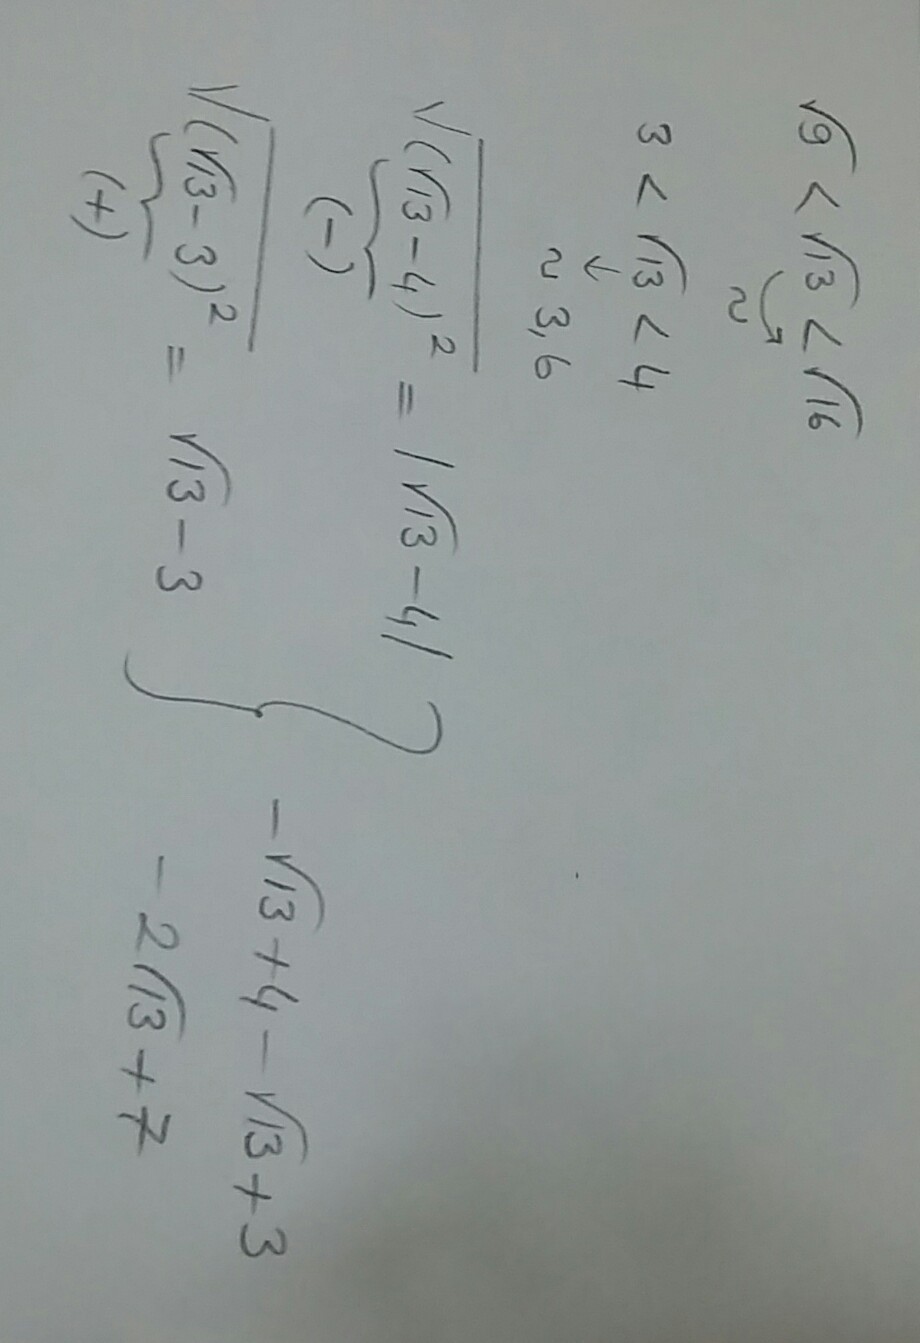 √9 < √13 < √16
~
3 < √13 < 4
↓
~ 3,6
√(√13 - 4)² = |√13 - 4|
(-)
√(√13 - 3)² = √13 - 3
(+)
-√13 + 4 - √13 + 3
- 2√13 + 7